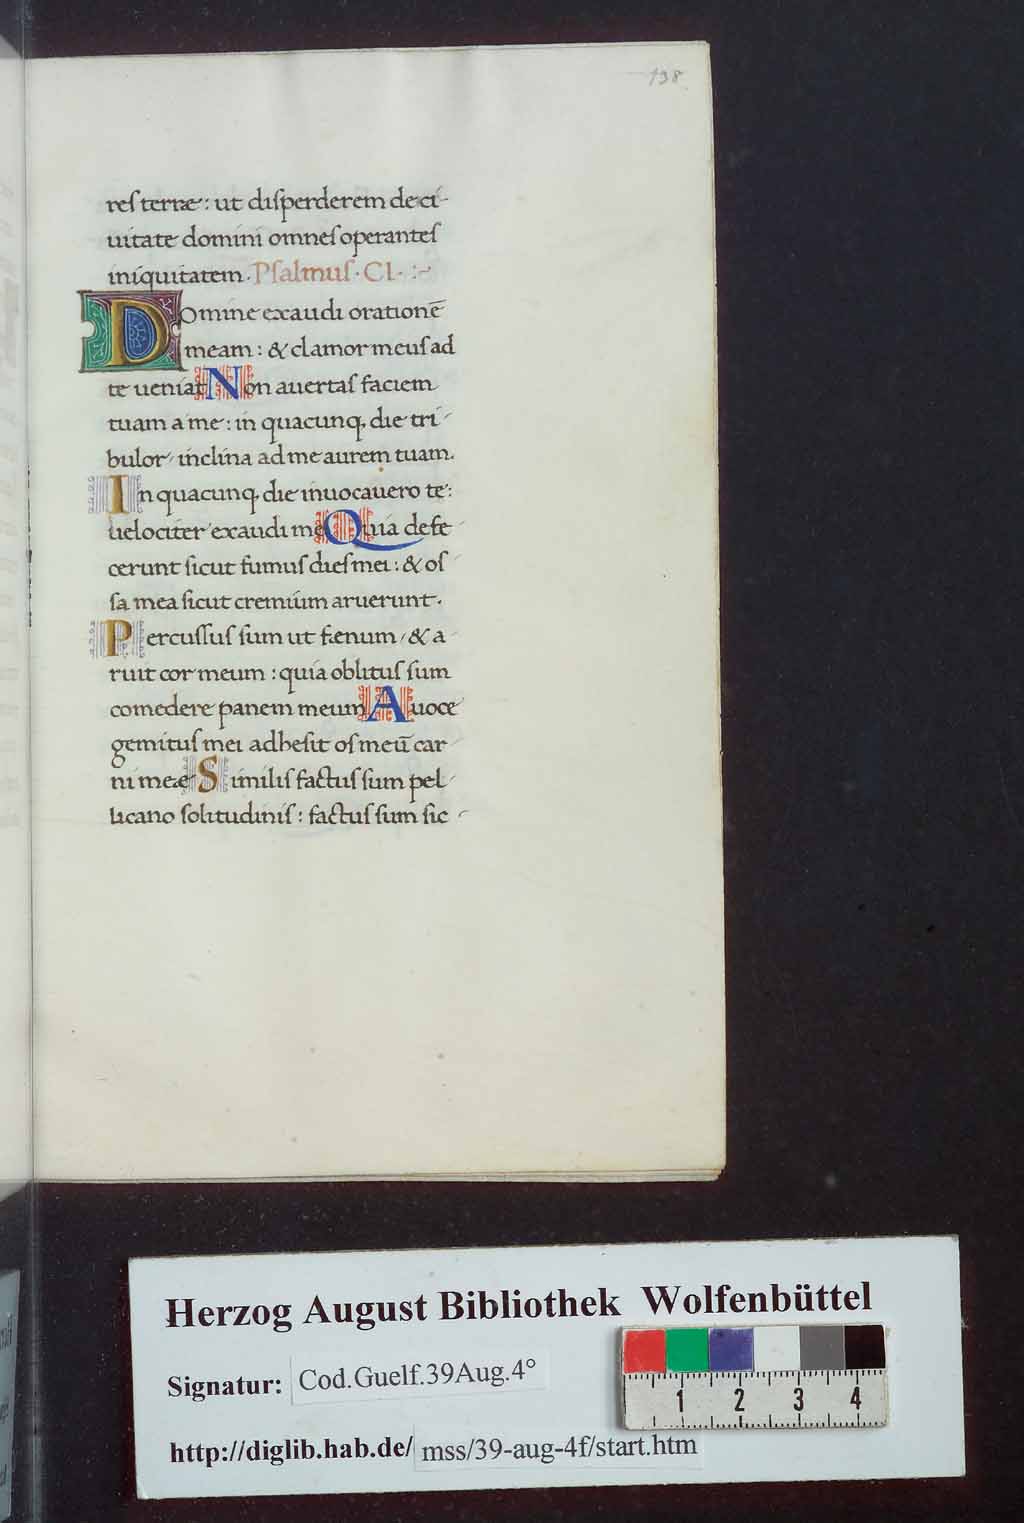 138
res terræ: ut disperderem de ci-
uitate domini omnes operantes
iniquitatem. Psalmus. CI. :~
Domine exaudi orationē
meam: & clamor meus ad
te ueniat Non auertas faciem
tuam a me: in quacunq, die tri-
bulor inclina ad me aurem tuam.
In quacunq, die inuocauero te:
uelociter exaudi me Quia defe-
cerunt sicut fumus dies mei: & os-
sa mea sicut cremium aruerunt.
Percussus sum ut fœnum, & a-
ruit cor meum: quia oblitus sum
comedere panem meum A uoce
gemitus mei adhesit os meū car-
ni meæ Similis factus sum pel-
licano solitudinis: factus sum sic-
Herzog August Bibliothek Wolfenbüttel
Signatur: Cod.Guelf.39Aug.4°
1 2 3 4
http://diglib.hab.de/ mss/39-aug-4f/start.htm